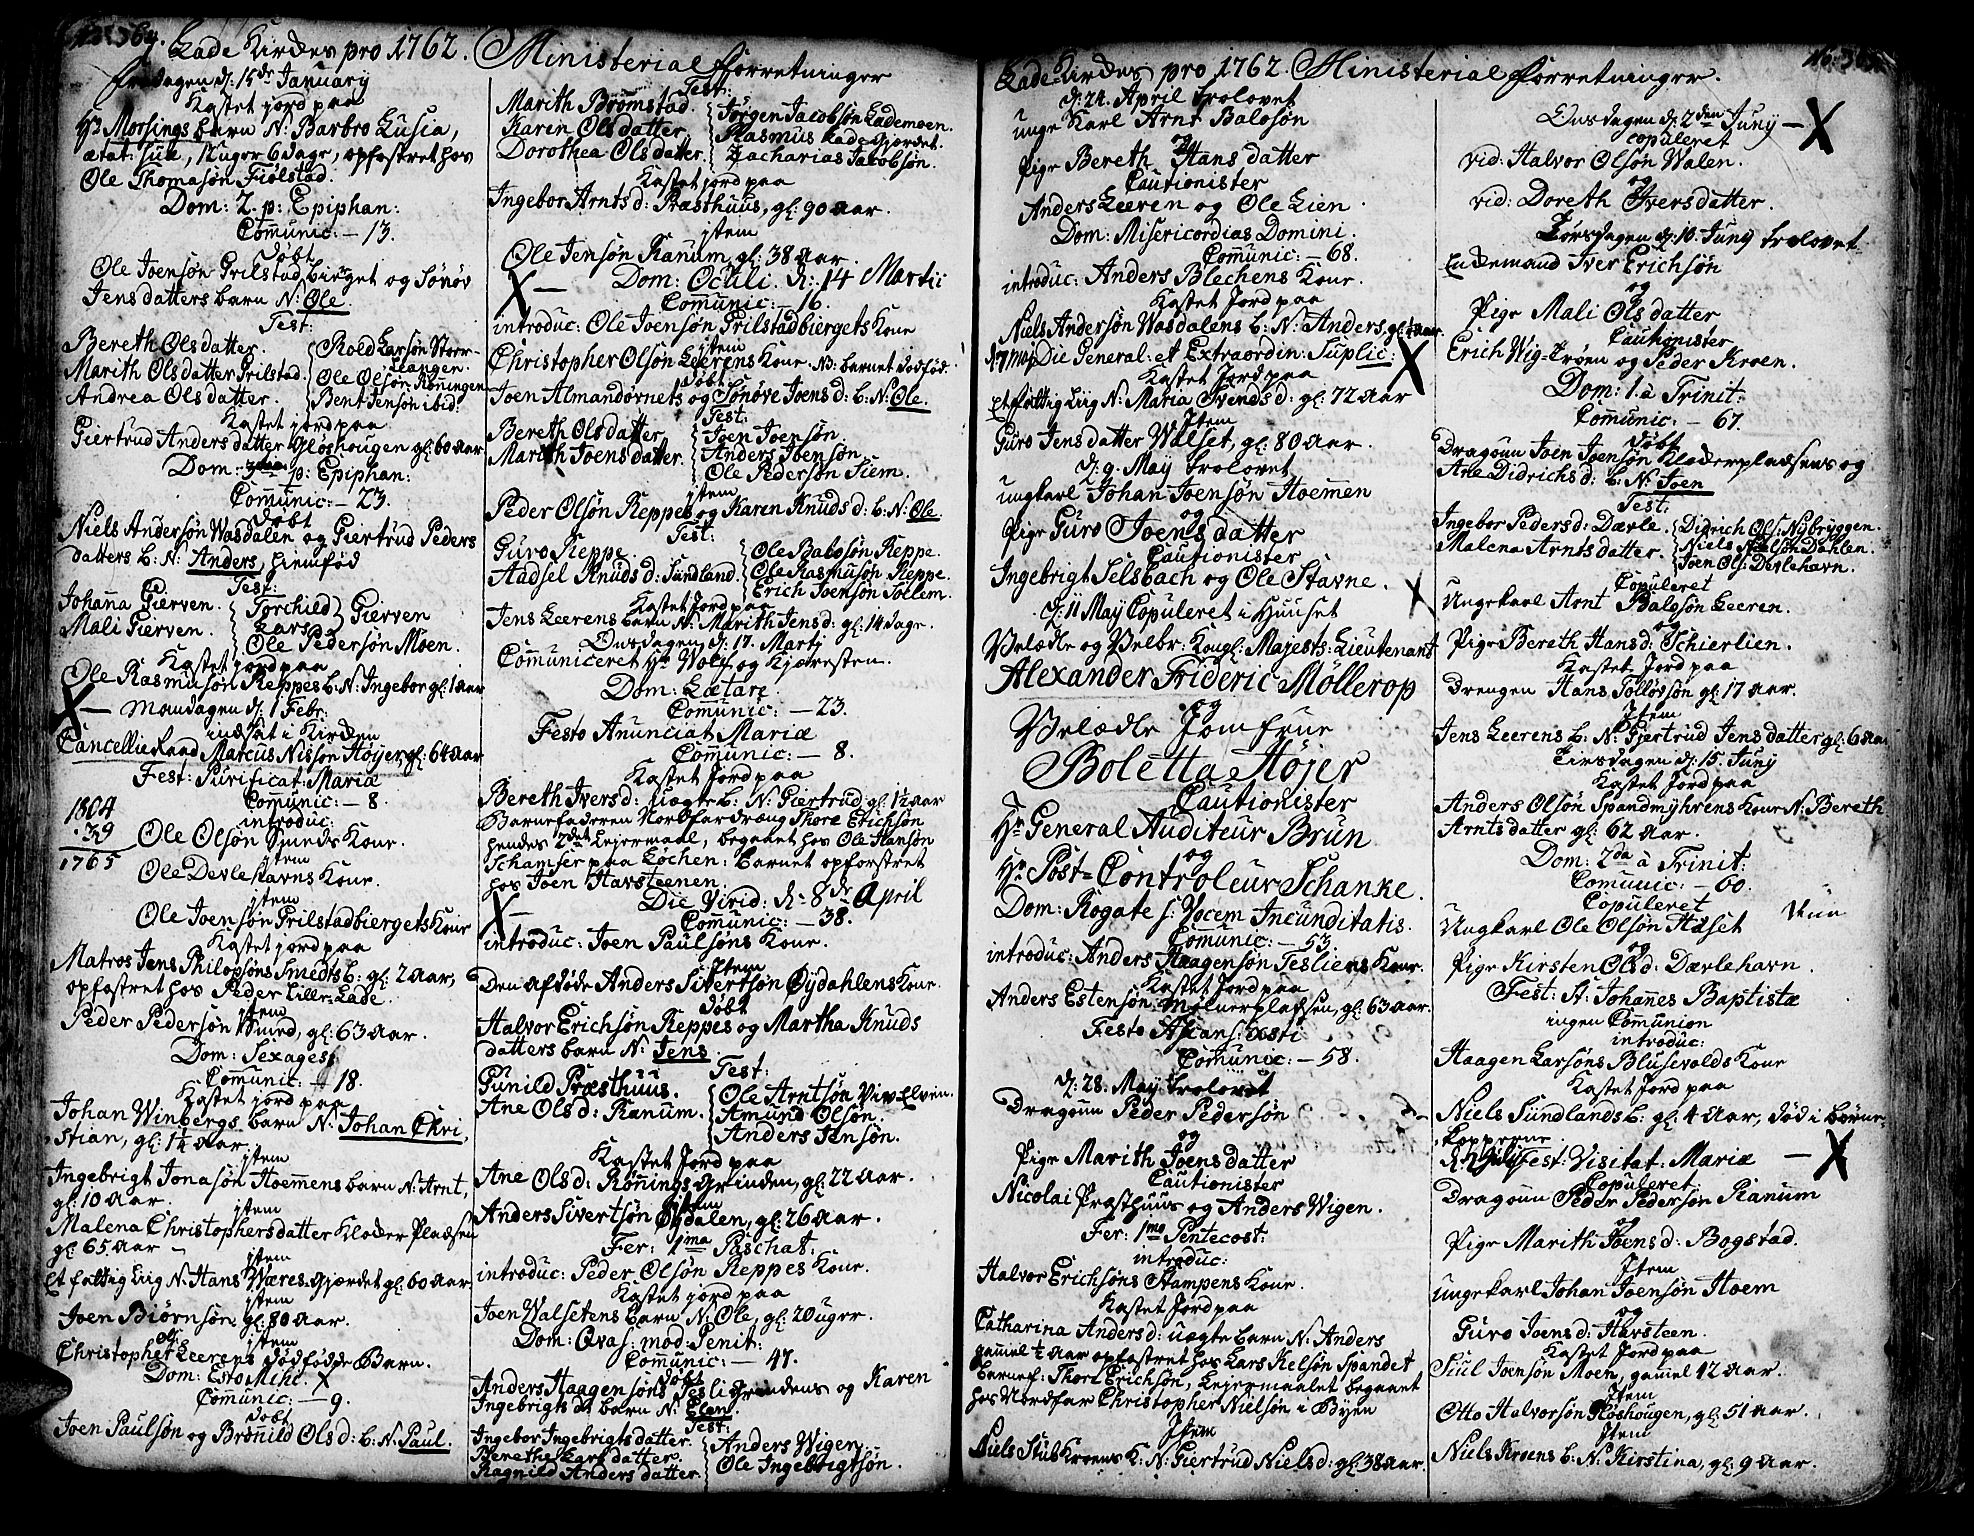 364.
Lade Kirches pro 1762. Ministerial fforretninger
Fredagen d: 15de January
Kastet jord paa
Hr Morsings barn N: Barbro Lusia,
ætat: suæ, 12 uger 6 dage, opfostret hos
Ole Thomasøn Fiølstad.
Dom: 2. p: Epiphan:
Comunic: – 13.
Døbt
Ole Joensøn Prilstadbierget og Sønøv
Jensdatters barn N: Ole.
Test:
Bereth Olsdatter.
Marith Olsdatter Prilstad.
Andrea Olsdatter.
Rold Larsøn Storr-
langen.
Ole Olsøn Röningen
Bent Jensøn ibid:
Kastet jord paa
Giertrud Andersdatter Gløshougen gl: 60 aar
Dom: 3tia p: Epiphan:
Comunic: – 23.
Døbt
Niels Andersøn Wasdalen og Giertrud Peders
datters b: N: Anders, hiemfød
Test:
Johana Gierven.
Mali Gierven.
Torchild
Lars
Gierven
Ole Pedersøn Moen.
Kastet jord paa
Ole Rasmusøn Reppes b: N: Ingebor gl: 1 aar
X – Mandagen d: 1 Febr.
indsat i Kirchen
Cancellieraad Marcus Nissøn Høyer, gl: 64 aar
Fest: Purificat: Mariæ
Comunic: – 8.
introduc:
1804
39
1765
Ole Olsøn Smeds Kone.
jtem
Ole Devlehavns Kone.
jtem
Ole Joensøn Prilstadbiergets Kone
Kastet jord paa
Matros Jens Philopsøns Smedts b: gl: 2 aar,
opfostret hos Peder Lille-Lade.
jtem
Peder Pedersøn Smed, gl: 63 aar.
Dom: Sexages:
Comunic: – 18.
Kastet jord paa
Johan Winbergs barn N: Johan Chri,
stian, gl: 1¼ aar.
jtem
Ingebrigt Jonasøn Hoemens barn N: Arnt,
gl: 10 aar.
jtem
Malena Christophersdatter Kloder Pladsen
gl: 65 aar –
jtem
Et fattig Liig N: Hans Wæres-Gjærdet gl: 60 aar
jtem
Joen Biørnsøn gl: 80 aar.
jtem
Christopher Leerens dødfødde Barn.
Dom: Esto Mihi. X
Comunic: – 9.
Døbt
Joen Paulsøn og Brønild Olsd: b: N: Paul.
Test:
Marith Brømstad
Karen Olsdatter.
Dorothea Olsdatter.
Jørgen Jacobsøn Lademoen.
Rasmus Ladegjærdet.
Zacharias Jacobsøn.
Kastet jord paa
Ingebor Arntsd: Præsthuus, gl: 90 aar.
jtem
Ole Jensøn Ranum, gl: 38 aar.
X – Dom: Oculi. d: 14 Martii
Comunic: – 16.
introduc: Ole Joensøn Prilstadbiergets Kone
jtem
Christopher Olsøn Leerens Kone. NB: barnet dødfød.
Døbt
Joen Almandørnets og Sønøve Joensd: b: N: Ole.
Test:
Bereth Olsdatter
Marith Joensdatter.
Joen Joensøn.
Anders Joensøn.
Ole Pedersøn Siem.
jtem
Peder Olsøn Reppes og Karen Knudsd: b: N: Ole.
Test:
Guro Reppe.
Aadsel Knudsd: Sundland.
Ole Balosøn Reppe.
Ole Rasmusøn Reppe.
Erich Joensøn Tollem.
Kastet Jord paa
Jens Leerens barn N: Marith Jensd: gl: 14 dage.
Onsdagen d: 17. Marti
Comuniceret Hr Wolf og Kjæresten.
Dom: Lætare
Comunic: – 23.
Festo Anunciat: Mariæ
Comunic: – 8.
Kastet Jord paa
Bereth Iversd: uægte b: N: Giertrud gl: 1½ aar
Barnefaderen Nordfardræng Thore Erichsøn
hendes 2det Lejermaal, begaaet hos Ole Hansøn
Schamser paa Løchen: Barnet opfostret
hos Joen Havsteenen.
Die Virid: d: 8de April
X – Comunic: – 38.
introduc: Joen Paulsøns Kone.
Jtem
Den afdøde Anders Sivertsøn Øydahlens Kone.
Døbt
Halvor Erichsøn Reppes og Martha Knuds
datters barn N: Jens
Test:
Gunild Præsthuus.
Ane Olsd: Ranum.
Ole Arntsøn Ved Elven.
Amund Olsøn.
Anders Jensøn.
Kastet Jord paa
Ane Olsd: Rönings Grinden, gl: 22 aar.
jtem
Anders Sivertsøn Øydalen, gl: 26 aar.
Fer: 1ma Paschat:
introduc: Peder Olsøn Reppes Kone.
Kastet jord paa
Joen Walsetens barn N: Ole, gl: 20 uger.
Dom: Qvas: mod: Genit:
Comunic: – 47.
Døbt
Anders Haagensøns Tesli og Karen
Ingebrigtsd: barn N: Elen.
Test:
Ingebor Ingebrigtsdatter.
Berethe Larsdatter
Ragnild Andersdatter
Anders Wigen.
Ole Ingebrigtsøn.
Lade Kirches pro 1762. Ministerial fforretninger.
d: 24. April trolovet
unge Karl Arnt Balosøn
og
Pige Bereth Hansdatter
Cautionister
Anders Leeren og Ole Lien.
Dom: Misericordias Domini.
Comunic: – 68.
introduc: Anders Blechens Kone.
Kastet Jord paa
Niels Andersøn Wasdalens b: N: Anders, gl: ¼ aar.
Die General: et Extraordin: Suplic: X
Kastet Jord paa
Et fattig Liig N: Maria Svendsd: gl: 72 aar
Jtem
Guro Jensdatter Walset, gl: 80 aar.
d: 9. May trolovet
ungkarl Johan Joensøn Hoemen
og
Pige Guro Joensdatter
Cautionister
Ingebrigt Selsbach og Ole Stavne.
d: 11 May Copuleret i Huuset
Velædle og Velbr: Kongl: Majests: Lieutenant
Alexander Frideric Möllerop
og
Velædle Jomfrue
Boletta Høyer
Cautionister
Hr General Auditeur Brun
og
Hr Post-Controleur Schanke.
Dom: Rogate s: Vocem Jucunditatis.
Comunic: – 53.
introduc: Anders Haagensøn Tesliens Kone.
Kastet Jord paa
Anders Estensøn Mølnerpladsen, gl: 63 aar.
Festo Ascens: Xsti
Comunic: – 58.
d: 28. May trolovet
Dragoun Peder Pedersøn
og
Pige Marith Joensdatter
Cautionister
Nicolai Præsthuus og Anders Wigen.
Fer: 1ma Pentecost:
introduc:
Halvor Erichsøns Stampens Kone.
Kastet Jord paa
Catharina Andersd: uægte barn N: Anders
gammel ½ aar opfostret hos Lars Kelsøn Spandet
barnef: Thore Erichsøn, Lejermaalet begaaet
hos Nordfar Christopher Nielsøn i Byen
Jtem
Niels Stub Kroens K: N: Giertrud Nielsd: gl: 38 aar.
Onsdagen d: 2den Juny – X
Copuleret
Vid: Halvor Olsøn Walen.
og
Vid: Doreth Iversdatter.
Torsdagen d: 10. Juny trolovet
Enchemand Iver Erichsøn
og
Pige Mali Olsdatter
Cautionister
Erich Wig-Trøen og Peder Kroen.
Dom: 1. à Trinit:
Comunic: – 67.
Døbt
Dragoun Joen Joensøn Kloderpladsens og
Ane Didrichsd: b: N: Joen
Test:
Ingebor Pedersd: Dævle.
Malena Arntsdatter.
Didrich Ols: Nybryggen.
Niels Nielsøn Dahlen.
Joen Ols: Devlehavn.
Copuleret
Ungekarl Arnt Balosøn Leeren.
og
Pige Bereth Hansd: Schierlien.
Kastet Jord paa
Drengen Hans Tolløssøn gl: 17 aar.
Jtem
Jens Leerens b: N: Gjertrud Jensdatter gl: 6 aar
Tirsdagen d: 15. Juny
Kastet Jord paa
Anders Olsøn Spandmyhrens Kone N: Bereth
Arntsdatter gl: 62 aar.
Dom: 2da à Trinit:
Comunic: – 60.
Copuleret
Ungkarl Ole Olsøn Halset
og
Pige Kirsten Olsd: Dævlehavn.
Fest: St: Johañes Baptistæ
ingen Comunion
introduc:
Haagen Larsøns Blusevolds Kone
Kastet Jord paa
Niels Sundlands b: gl: 4 aar, død i børne-
kopperne.
Fest: Visitat: Mariæ – X
Copuleret
Dragoun Peder Pedersøn Ranum
og
Pige Marith Joensd: Bogstad.
Jtem
ungekarl Johan Joensøn Hoem
og
Guro Joensd: Havsteen.
Kastet Jord paa
Siul Joensøn Moen, gammel 42 aar.
Jtem
Otto Halvorsøn Røshougen, gl: 51 aar.
Jtem
Niels Kroens b: N: Kirstina, gl: 9 aar.